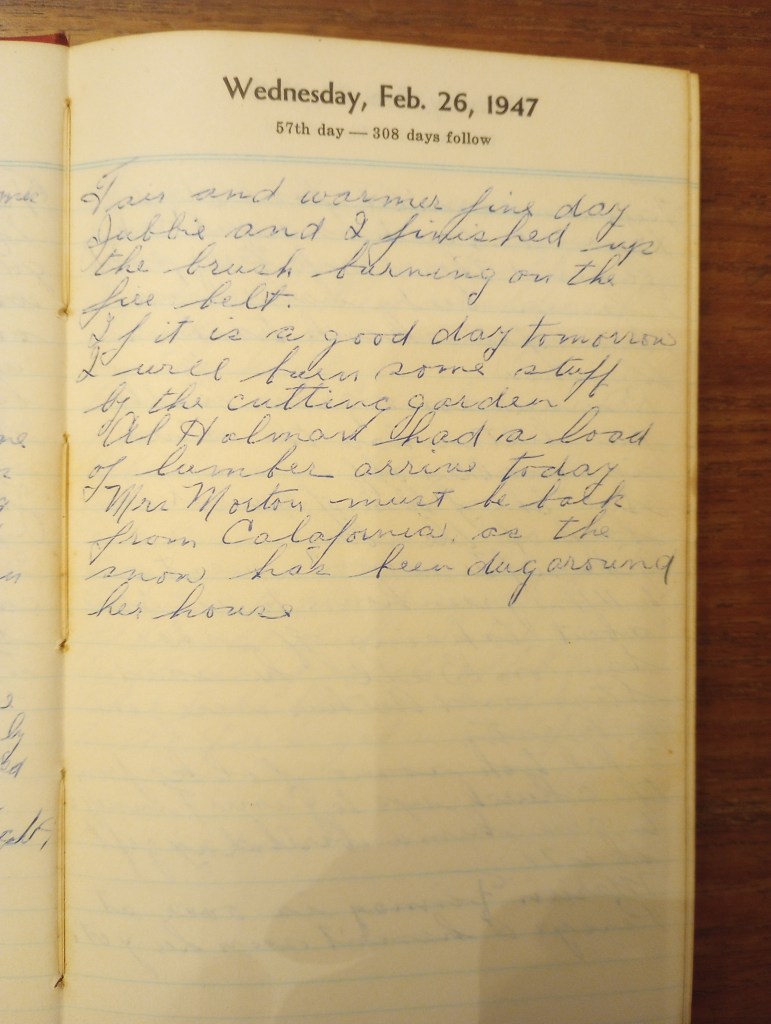 Wednesday, Feb. 26, 1947
57th day — 308 days follow
Fair and warmer fine day
Jubbie and I finished up
the brush burning on the
fire belt.
If it is a good day tomorrow
I will burn some stuff
by the cutting garden
Al Holman had a load
of lumber arrive today
Mrs Morton must be back
from Calafornia. as the
snow has been dug around
her house